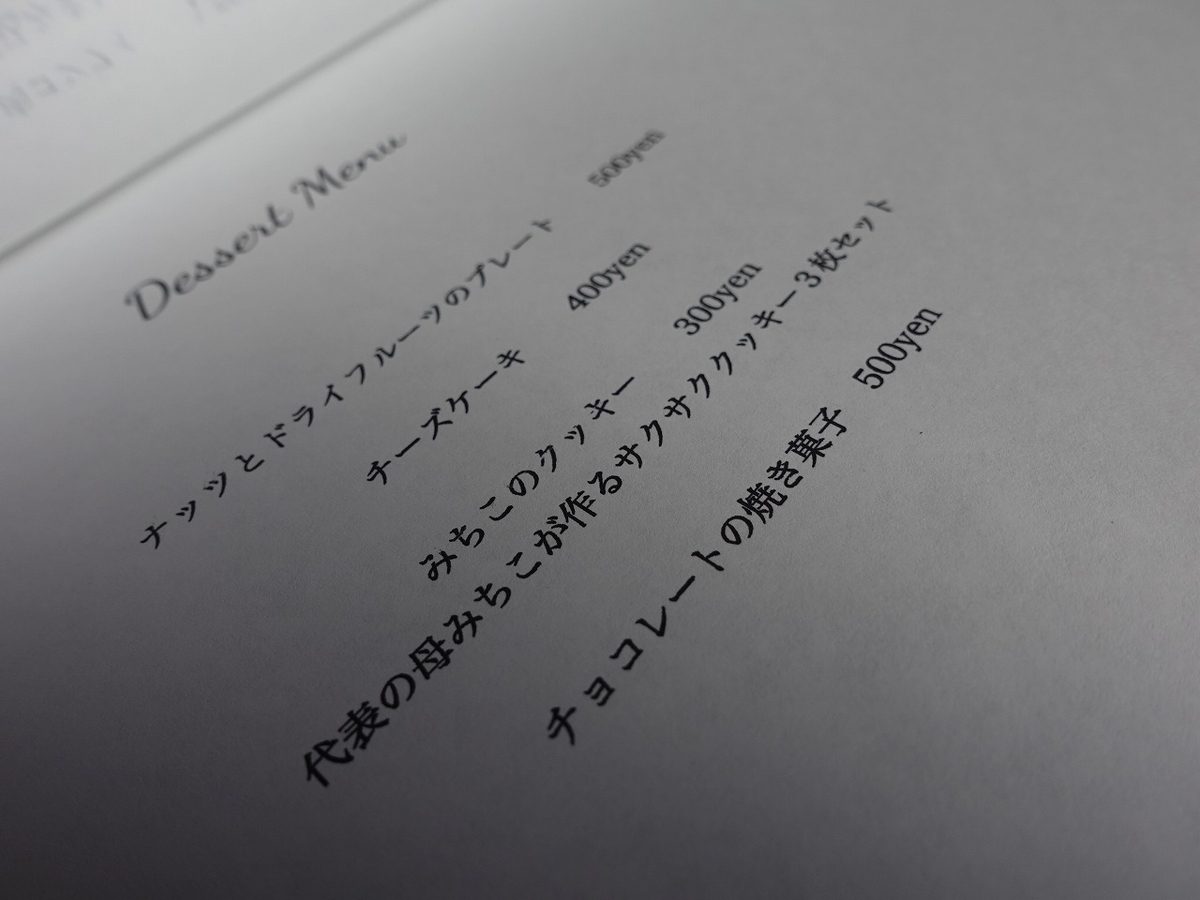 Dessert Menu
ナッツとドライフルーツのプレート 500yen
チーズケーキ 400yen
みちこのクッキー 300yen
代表の母みちこが作るサクサククッキー3枚セット
チョコレートの焼き菓子 500yen